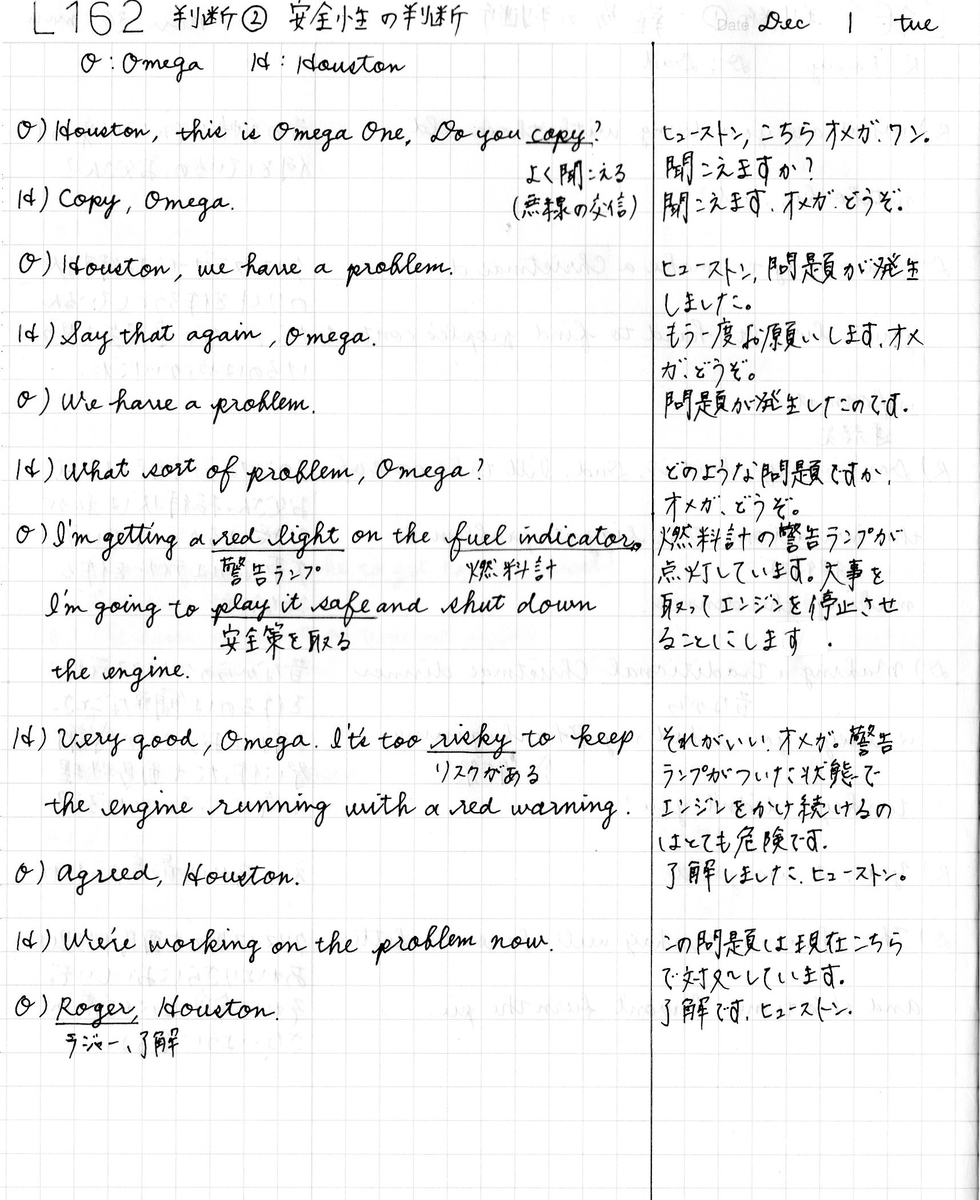 L162 判断② 安全性の判断 Date Dec 1 tue
O : Omega H : Houston
O) Houston, this is Omega One, Do you copy?
よく聞こえる
(無線の交信)
H) Copy, Omega.
O) Houston, we have a problem.
H) Say that again, Omega.
O) We have a problem.
H) What sort of problem, Omega?
O) I'm getting a red light on the fuel indicator.
警告ランプ 燃料計
I'm going to play it safe and shut down
安全策を取る
the engine.
H) Very good, Omega. It's too risky to keep
リスクがある
the engine running with a red warning.
O) Agreed, Houston.
H) We're working on the problem now.
O) Roger, Houston.
ラジャー、了解
ヒューストン, こちらオメガ.ワン。
聞こえますか?
聞こえます、オメガ.どうぞ。
ヒューストン, 問題が発生
しました。
もう一度お願いします、オメ
ガ、どうぞ。
問題が発生したのです.
どのような問題ですか,
オメガ、どうぞ。
燃料計の警告ランプが
点灯しています。大事を
取ってエンジンを停止させ
ることにします.
それがいい、オメガ。警告
ランプがついた状態で
エンジンをかけ続けるの
はとても危険です.
了解しました、ヒューストン。
この問題は現在こちら
で対処しています.
了解です、ヒューストン.